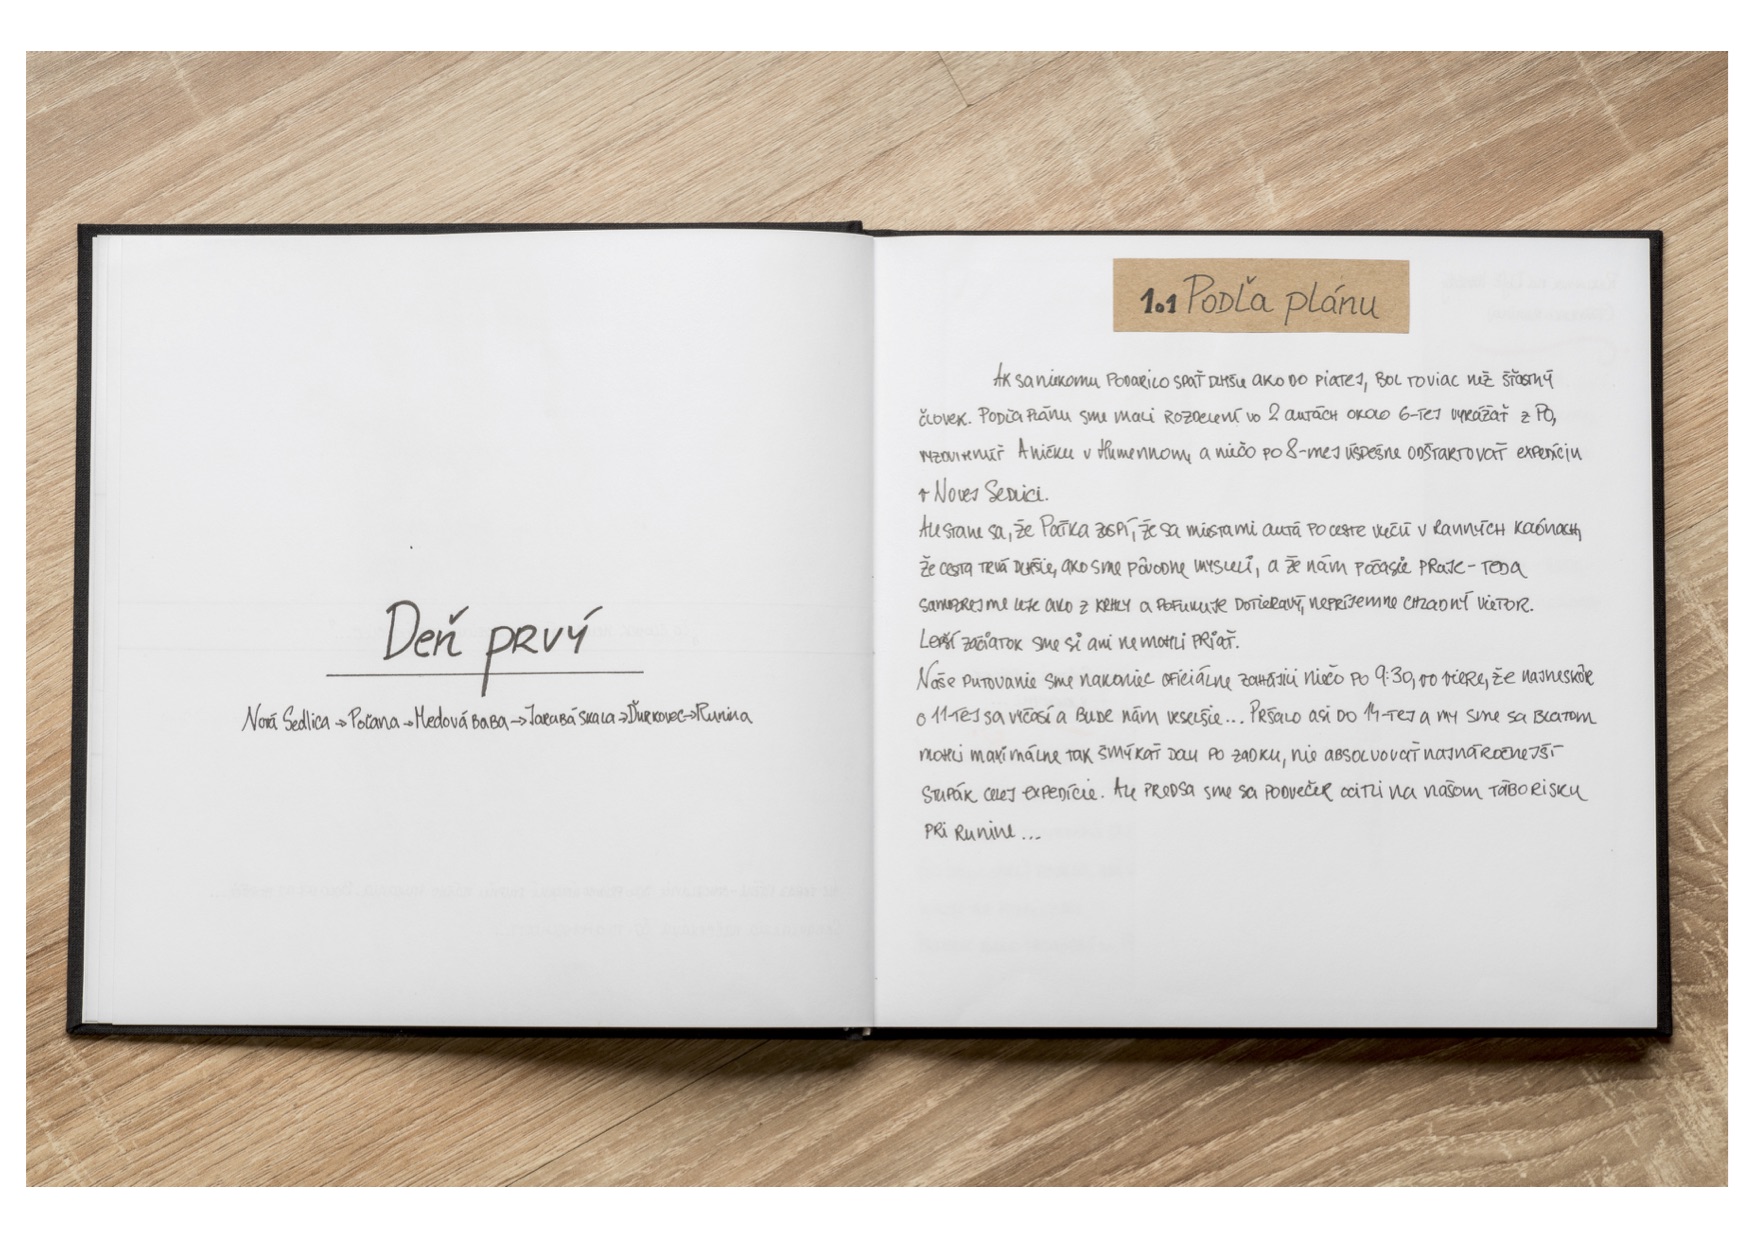 Deň prvý
Nová Sedlica → Poľana → Medová baba → Jarabá skala → Ďurkovec → Runina
1.1 Podľa plánu
Ak sa niekomu podarilo spať dlhšie ako do piatej, bol to viac než šťastný
človek. Podľa plánu sme mali rozdelení vo 2 autách okolo 6-tej vyrážať z PO,
vyzdvihnúť Aničku v Humennom, a niečo po 8-mej úspešne odštartovať expedíciu
v Novej Sedlici.
Ale stane sa, že Paťka zaspí, že sa miestami autá po ceste vlečú v ranných kolónach,
že cesta trvá dlhšie, ako sme pôvodne mysleli, a že nám počasie praje - teda
samozrejme leje ako z krhly a pofukuje dotieravý, nepríjemne chladný vietor.
Lepší začiatok sme si ani nemohli priať.
Naše putovanie sme nakoniec oficiálne zahájili niečo po 9:30, vo viere, že najneskôr
o 11-tej sa vyčasí a bude nám veselšie... Pršalo asi do 14-tej a my sme sa blatom
mohli maximálne tak šmýkať dolu po zadku, nie absolvovať najnáročnejší
stupák celej expedície. Ale predsa sme sa podvečer ocitli na našom táborisku
pri Runine...